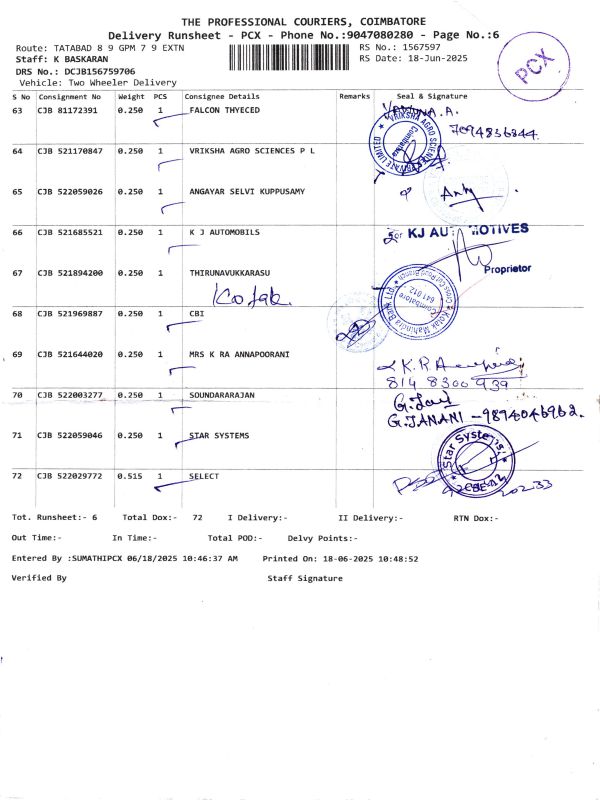 THE PROFESSIONAL COURIERS, COIMBATORE
Delivery Runsheet - PCX - Phone No.:9047080280 - Page No.:6
Route: TATABAD 8 9 GPM 7 9 EXTN
RS No.: 1567597
Staff: K BASKARAN
RS Date: 18-Jun-2025
DRS No.: DCJB156759706
Vehicle: Two Wheeler Delivery
PCX
S No Consignment No Weight PCS Consignee Details Remarks Seal & Signature
63 CJB 81172391 0.250 1 FALCON THYECED
7094836344
64 CJB 521170847 0.250 1 VRIKSHA AGRO SCIENCES P L
VRIKSHA AGRO SCIENCES PRIVATE LIMITED
Coimbatore
65 CJB 522059026 0.250 1 ANGAYAR SELVI KUPPUSAMY
66 CJB 521685521 0.250 1 K J AUTOMOBILS
For KJ AUTOMOTIVES
Proprietor
67 CJB 521894200 0.250 1 THIRUNAVUKKARASU
Kotak
Kotak Mahindra Bank Ltd.
Coimbatore
641 012
68 CJB 521969887 0.250 1 CBI
69 CJB 521644020 0.250 1 MRS K RA ANNAPOORANI
K.R.A
814 8300 939
70 CJB 522003277 0.250 1 SOUNDARARAJAN
G. JANANI - 9894046962.
71 CJB 522059046 0.250 1 STAR SYSTEMS
Star Systems
72 CJB 522029772 0.515 1 SELECT
Tot. Runsheet:- 6 Total Dox:- 72 I Delivery:- II Delivery:- RTN Dox:-
Out Time:- In Time:- Total POD:- Delvy Points:-
Entered By :SUMATHIPCX 06/18/2025 10:46:37 AM Printed On: 18-06-2025 10:48:52
Verified By Staff Signature